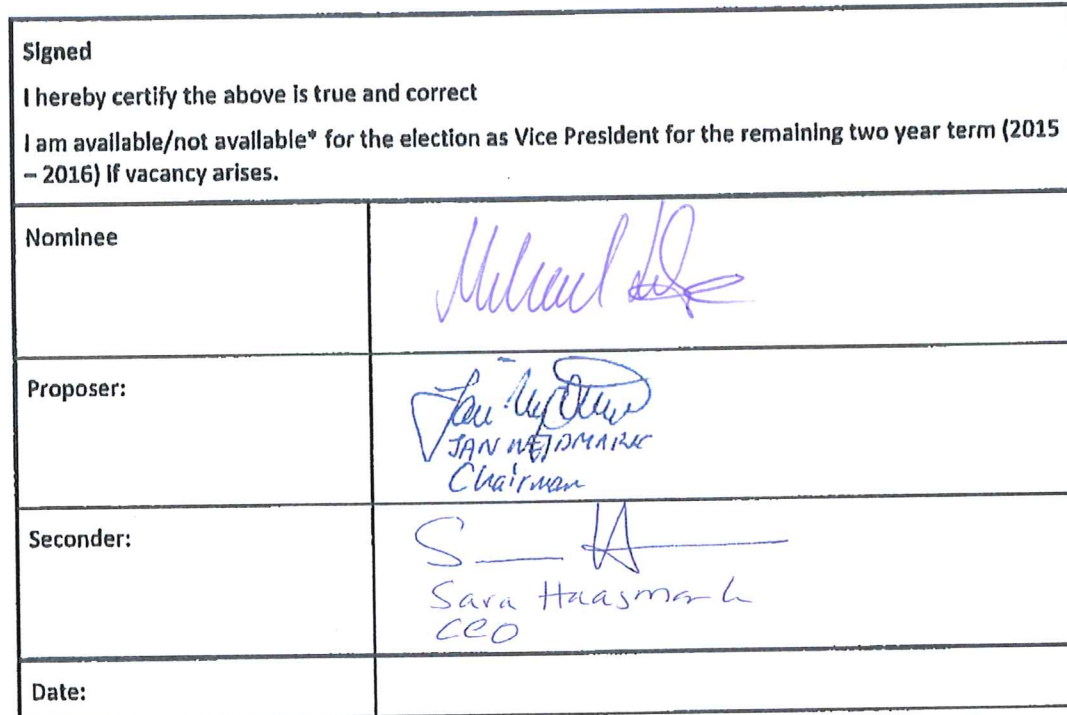 Signed
I hereby certify the above is true and correct
I am available/not available* for the election as Vice President for the remaining two year term (2015
– 2016) if vacancy arises.
Nominee
Michael
Proposer:
Jan
JAN
Chairman
Seconder:
Sara Haasmark
CEO
Date: